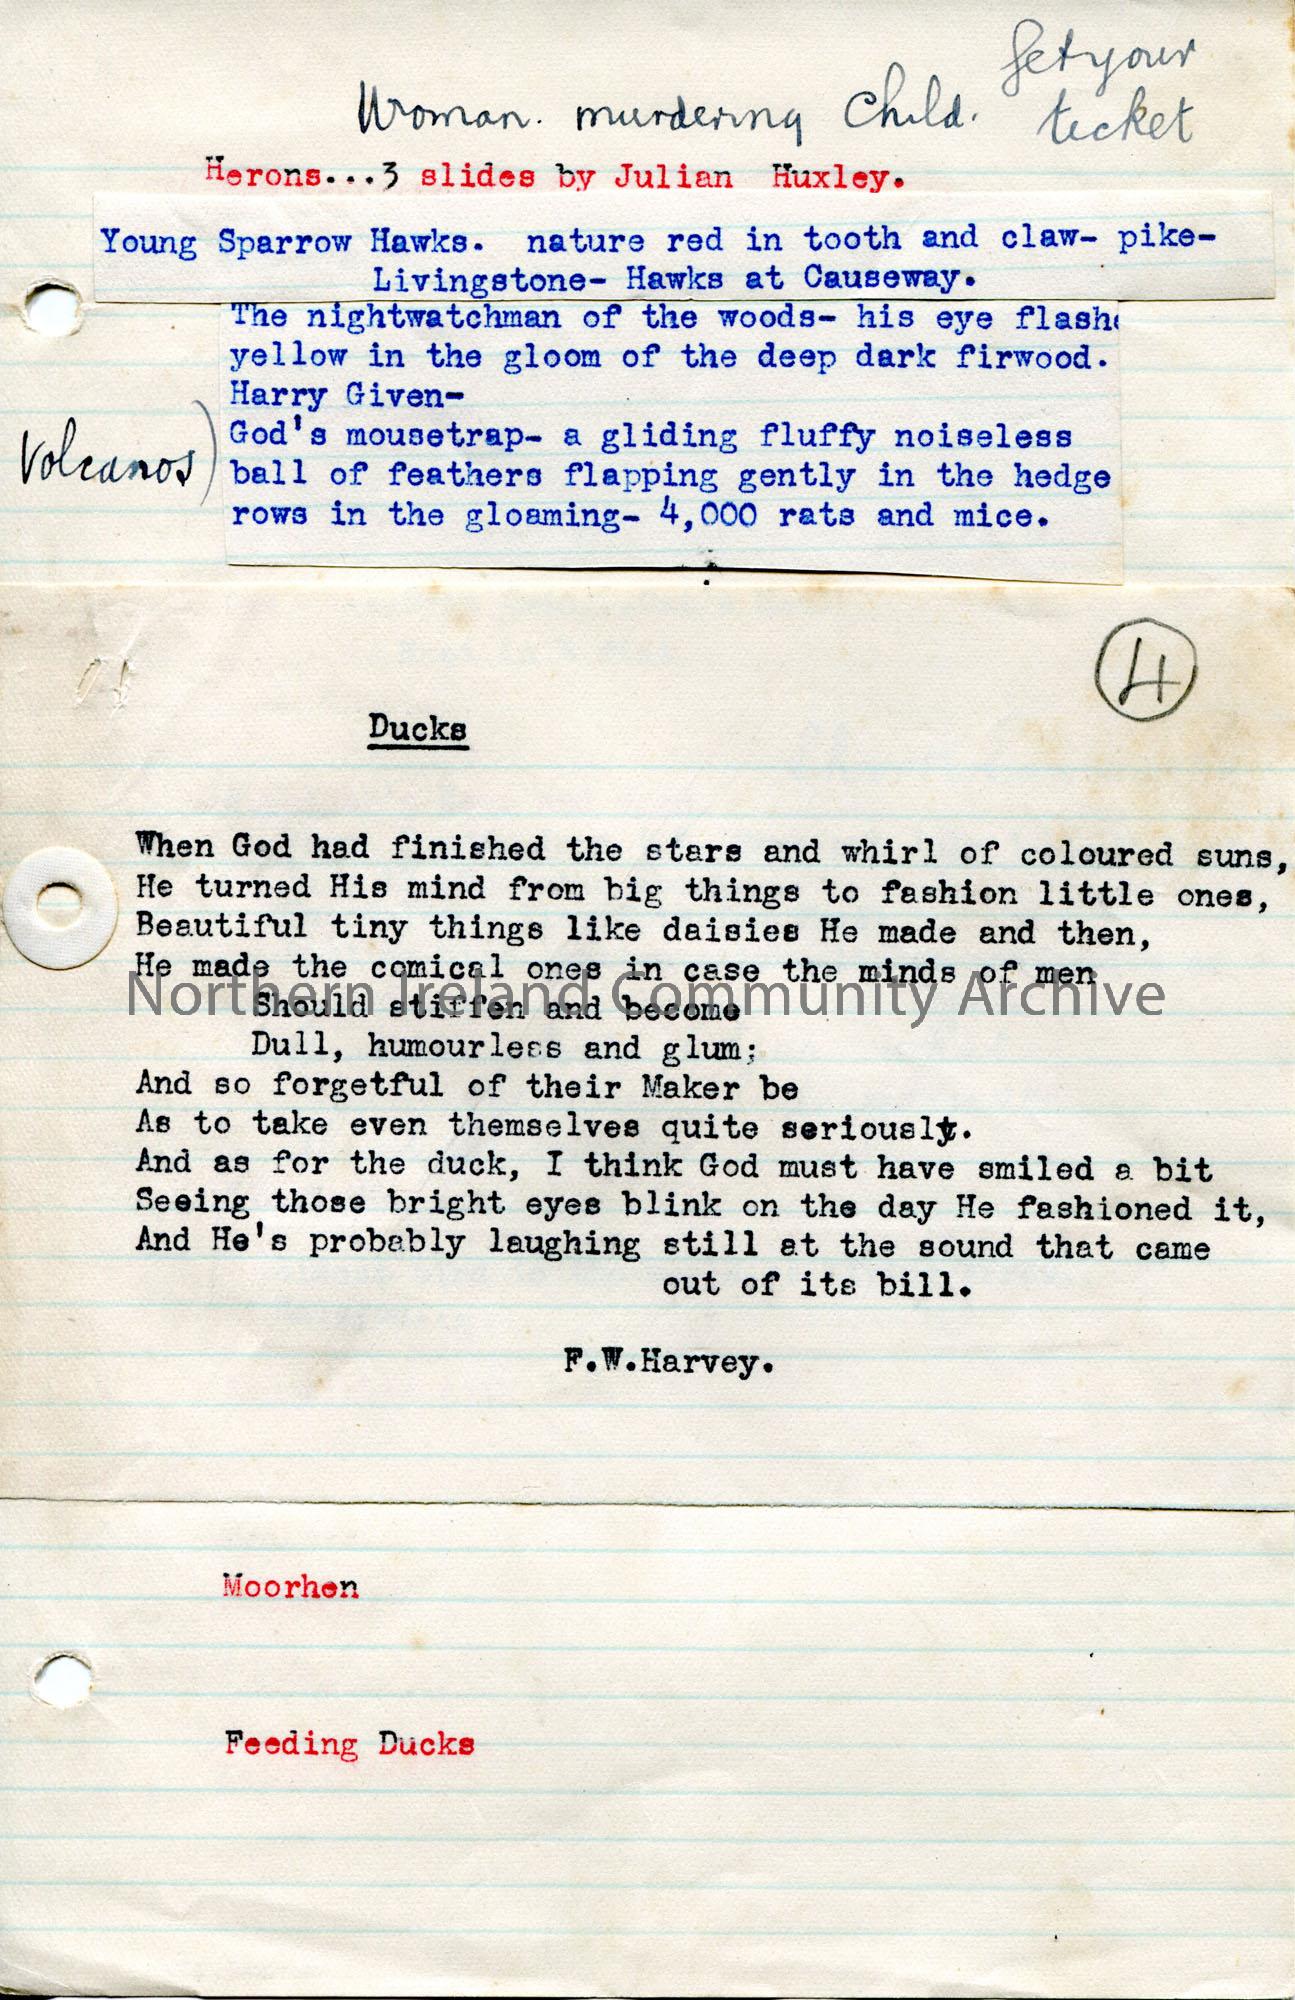 Get your
Woman. murdering Child. ticket
Herons...3 slides by Julian Huxley.
Young Sparrow Hawks. nature red in tooth and claw- pike-
Livingstone- Hawks at Causeway.
The nightwatchman of the woods- his eye flashe
yellow in the gloom of the deep dark firwood.
Harry Given-
Volcanos) God's mousetrap- a gliding fluffy noiseless
ball of feathers flapping gently in the hedge
rows in the gloaming- 4,000 rats and mice.
4
Ducks
When God had finished the stars and whirl of coloured suns,
He turned His mind from big things to fashion little ones,
Beautiful tiny things like daisies He made and then,
He made the comical ones in case the minds of men
Northern Ireland Community Archive
Should stiffen and become
Dull, humourless and glum;
And so forgetful of their Maker be
As to take even themselves quite seriously.
And as for the duck, I think God must have smiled a bit
Seeing those bright eyes blink on the day He fashioned it,
And He's probably laughing still at the sound that came
out of its bill.
F.W.Harvey.
Moorhen
Feeding Ducks